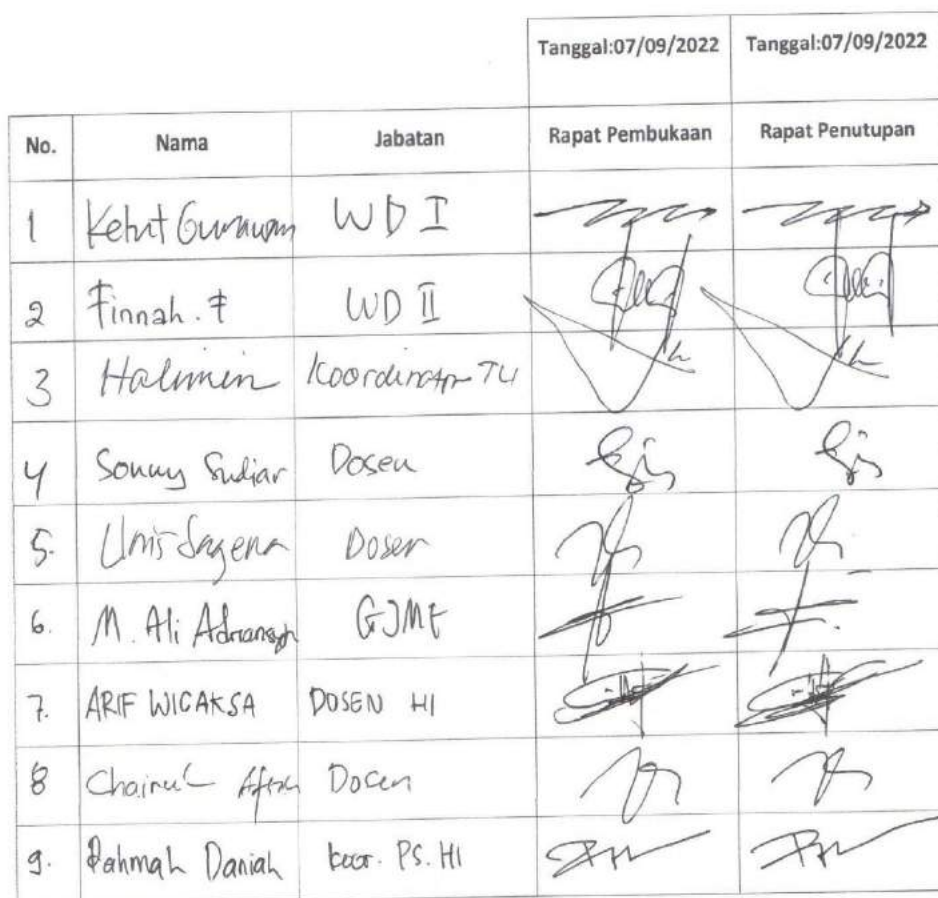 Tanggal:07/09/2022 Tanggal:07/09/2022
No. Nama Jabatan Rapat Pembukaan Rapat Penutupan
1 Ketut Gunawan WD I
2 Finnah. F WD II
3 Halimin Koordinator TU
4 Sonny Sudiar Dosen
5. Unis Sagena Dosen
6. M. Ali Adriansyah GJMF
7. ARIF WICAKSA DOSEN HI
8 Chairul Dosen
9. Rahmah Daniah koor. PS. HI